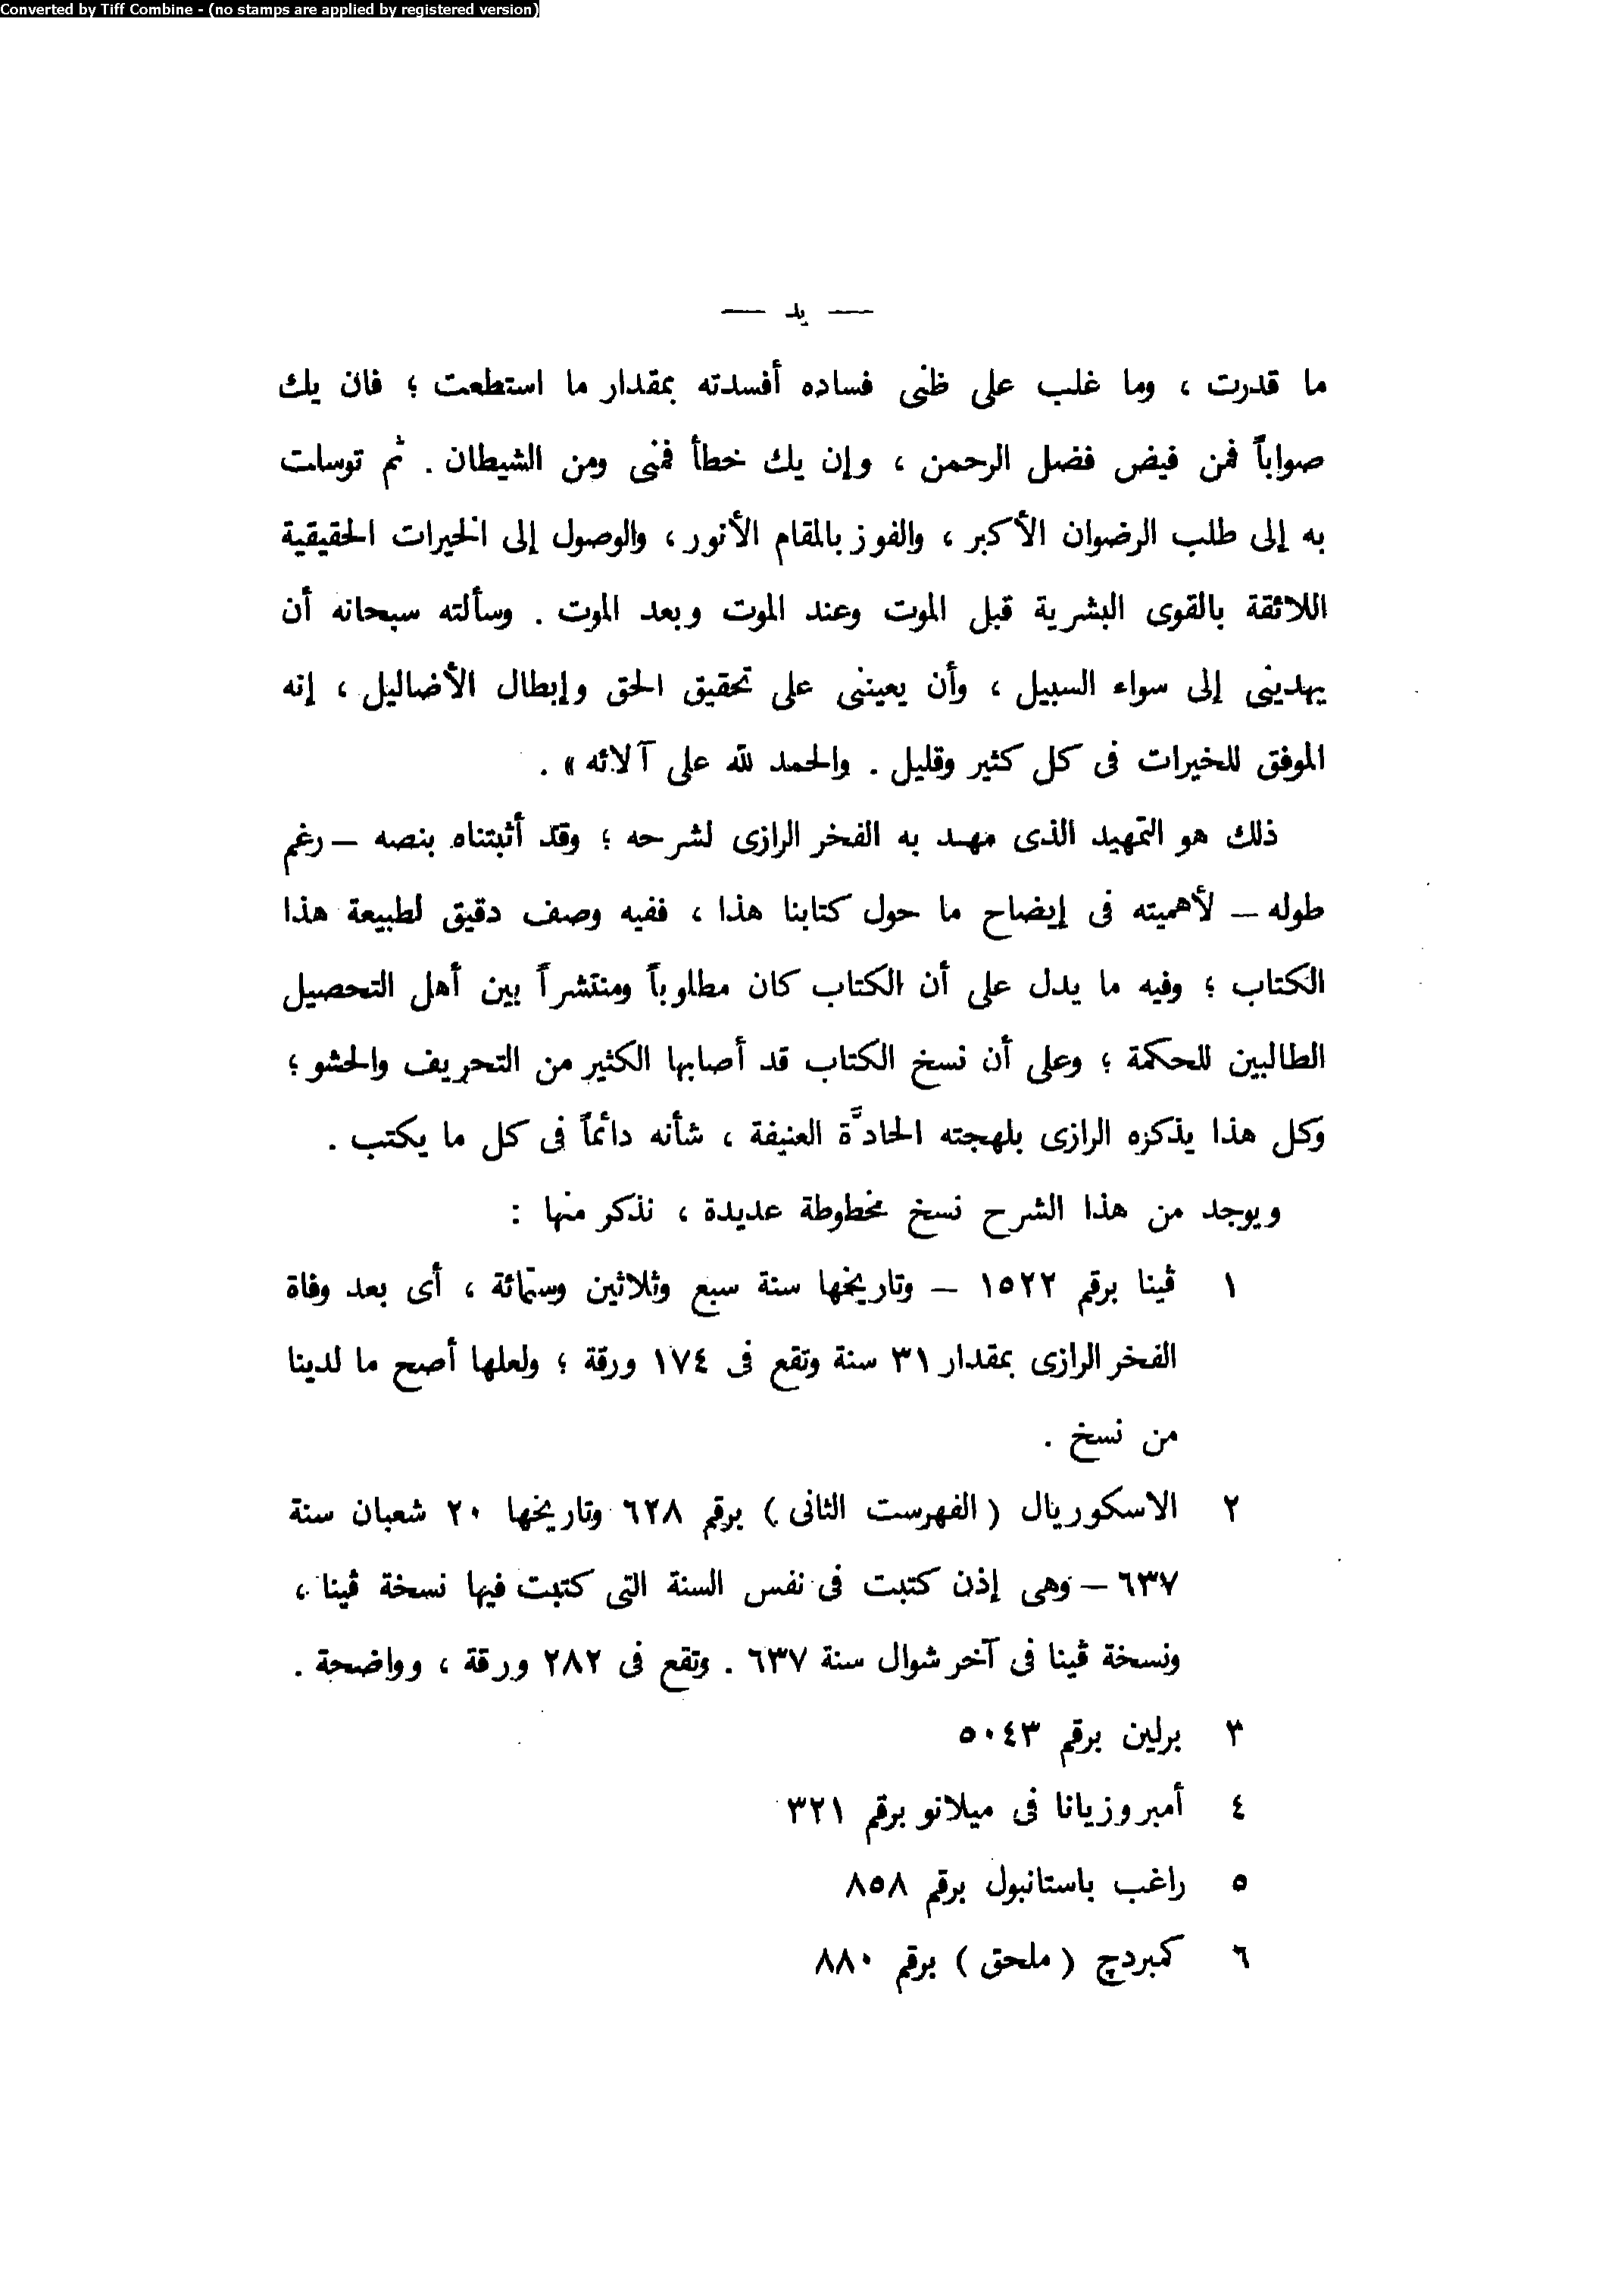 Converted by Tiff Combine - (no stamps are applied by registered version)
— يد —
ما قدرت ، وما غلب على ظنى فساده أفسدته بمقدار ما استطعت ؛ فان يك
صواباً فمن فيض فضل الرحمن ، وإن يك خطأ فمنى ومن الشيطان . ثم توسلت
به إلى طلب الرضوان الأكبر ، والفوز بالمقام الأنور ، والوصول إلى الخيرات الحقيقية
اللائقة بالقوى البشرية قبل الموت وعند الموت وبعد الموت . وسألته سبحانه أن
يهدينى إلى سواء السبيل ، وأن يعيننى على تحقيق الحق وإبطال الأضاليل ، إنه
الموفق للخيرات فى كل كثير وقليل . والحمد لله على آلائه » .
ذلك هو التمهيد الذى مهد به الفخر الرازى لشرحه ؛ وقد أثبتناه بنصه — رغم
طوله — لأهميته فى إيضاح ما حول كتابنا هذا ، ففيه وصف دقيق لطبيعة هذا
الكتاب ؛ وفيه ما يدل على أن الكتاب كان مطلوباً ومنتشراً بين أهل التحصيل
الطالبين للحكمة ؛ وعلى أن نسخ الكتاب قد أصابها الكثير من التحريف والحشو ؛
وكل هذا يذكره الرازى بلهجته الحادَّة العنيفة ، شأنه دائماً فى كل ما يكتب .
ويوجد من هذا الشرح نسخ مخطوطة عديدة ، نذكر منها :
١ ڤينا برقم ١٥٢٢ — وتاريخها سنة سبع وثلاثين وستمائة ، أى بعد وفاة
الفخر الرازى بمقدار ٣١ سنة وتقع فى ١٧٤ ورقة ؛ ولعلها أصح ما لدينا
من نسخ .
٢ الاسكوريال ( الفهرست الثانى ) برقم ٦٢٨ وتاريخها ٢٠ شعبان سنة
٦٣٧ — وهى إذن كتبت فى نفس السنة التى كتبت فيها نسخة ڤينا ،
ونسخة ڤينا فى آخر شوال سنة ٦٣٧ . وتقع فى ٢٨٢ ورقة ، وواضحة .
٣ برلين برقم ٥٠٤٣
٤ أمبروزيانا فى ميلانو برقم ٣٢١
٥ راغب باستانبول برقم ٨٥٨
٦ كمبردچ ( ملحق ) برقم ٨٨٠